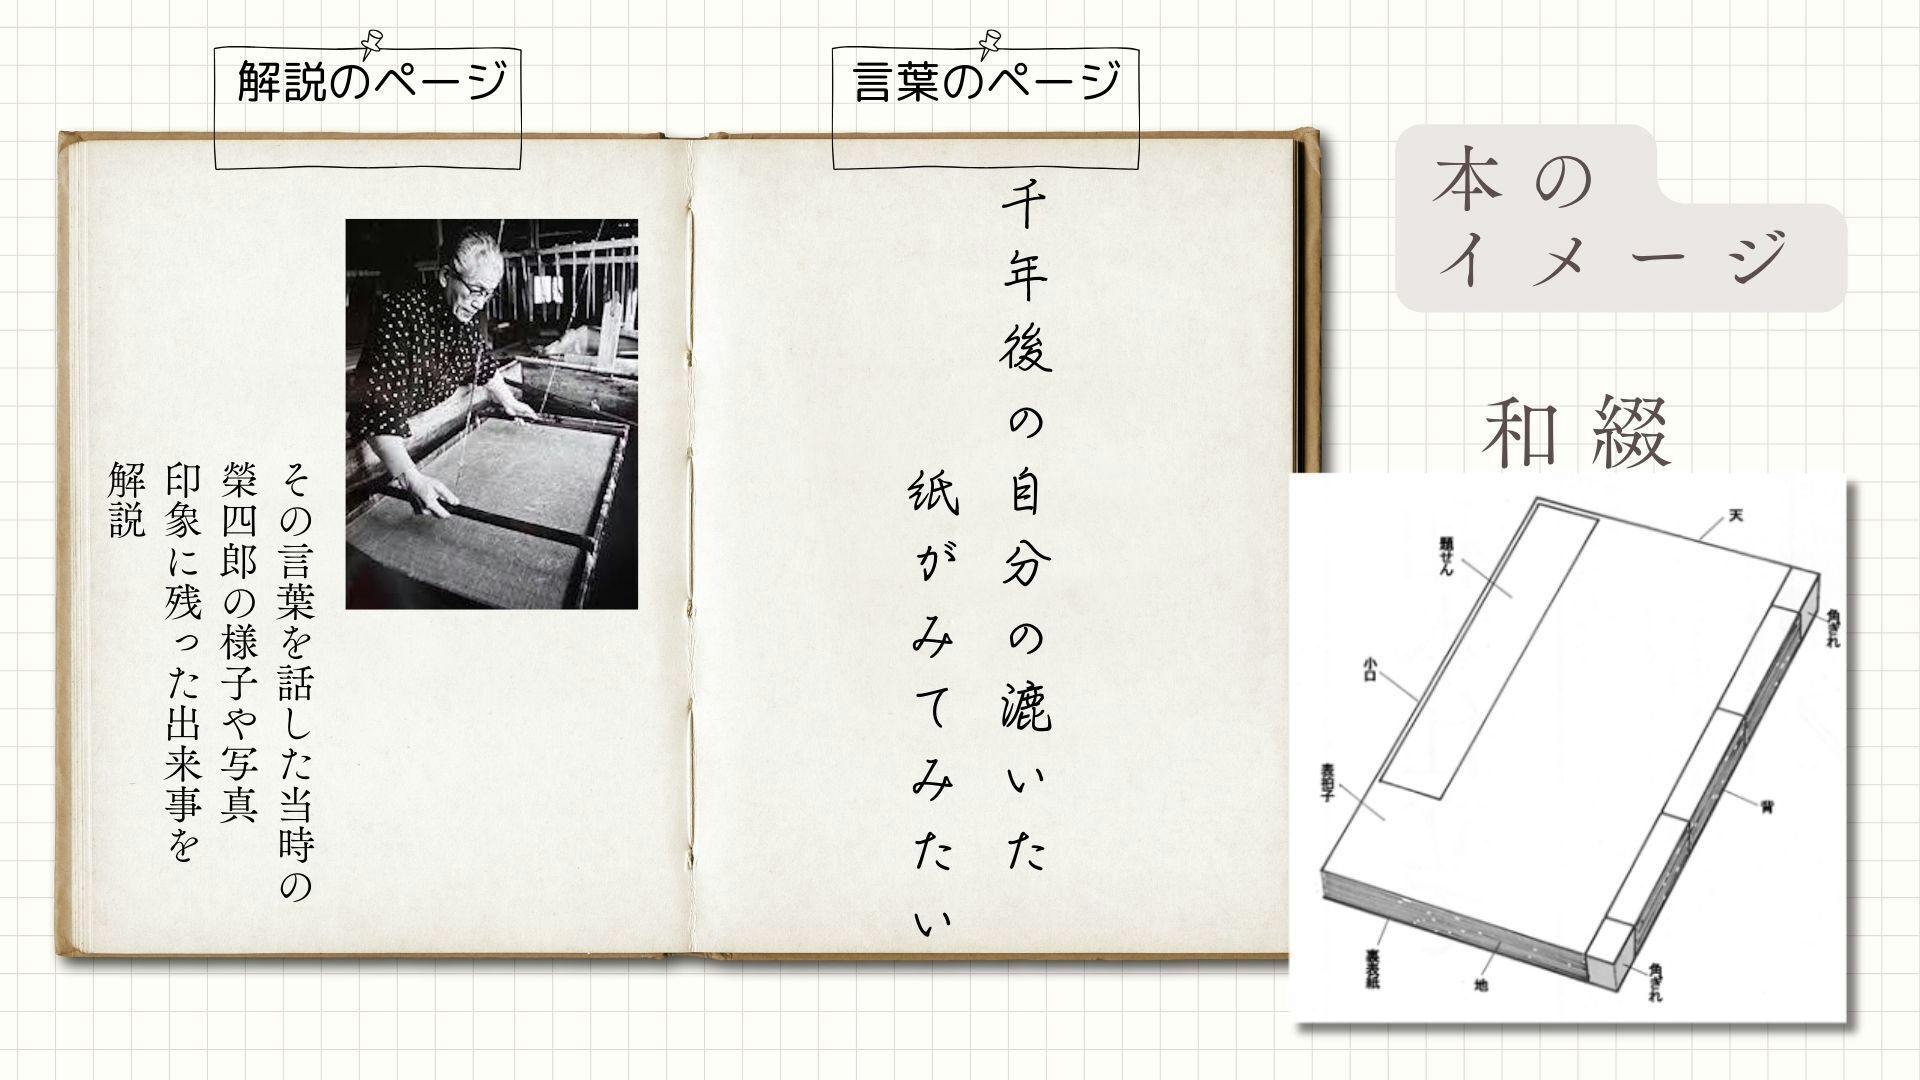 解説のページ
言葉のページ
本の
イメージ
和綴
千年後の自分の漉いた
紙がみてみたい
その言葉を話した当時の
榮四郎の様子や写真
印象に残った出来事を
解説
天
題せん
角ぎれ
小口
表拍子
背
裏表紙
地
角ぎれ